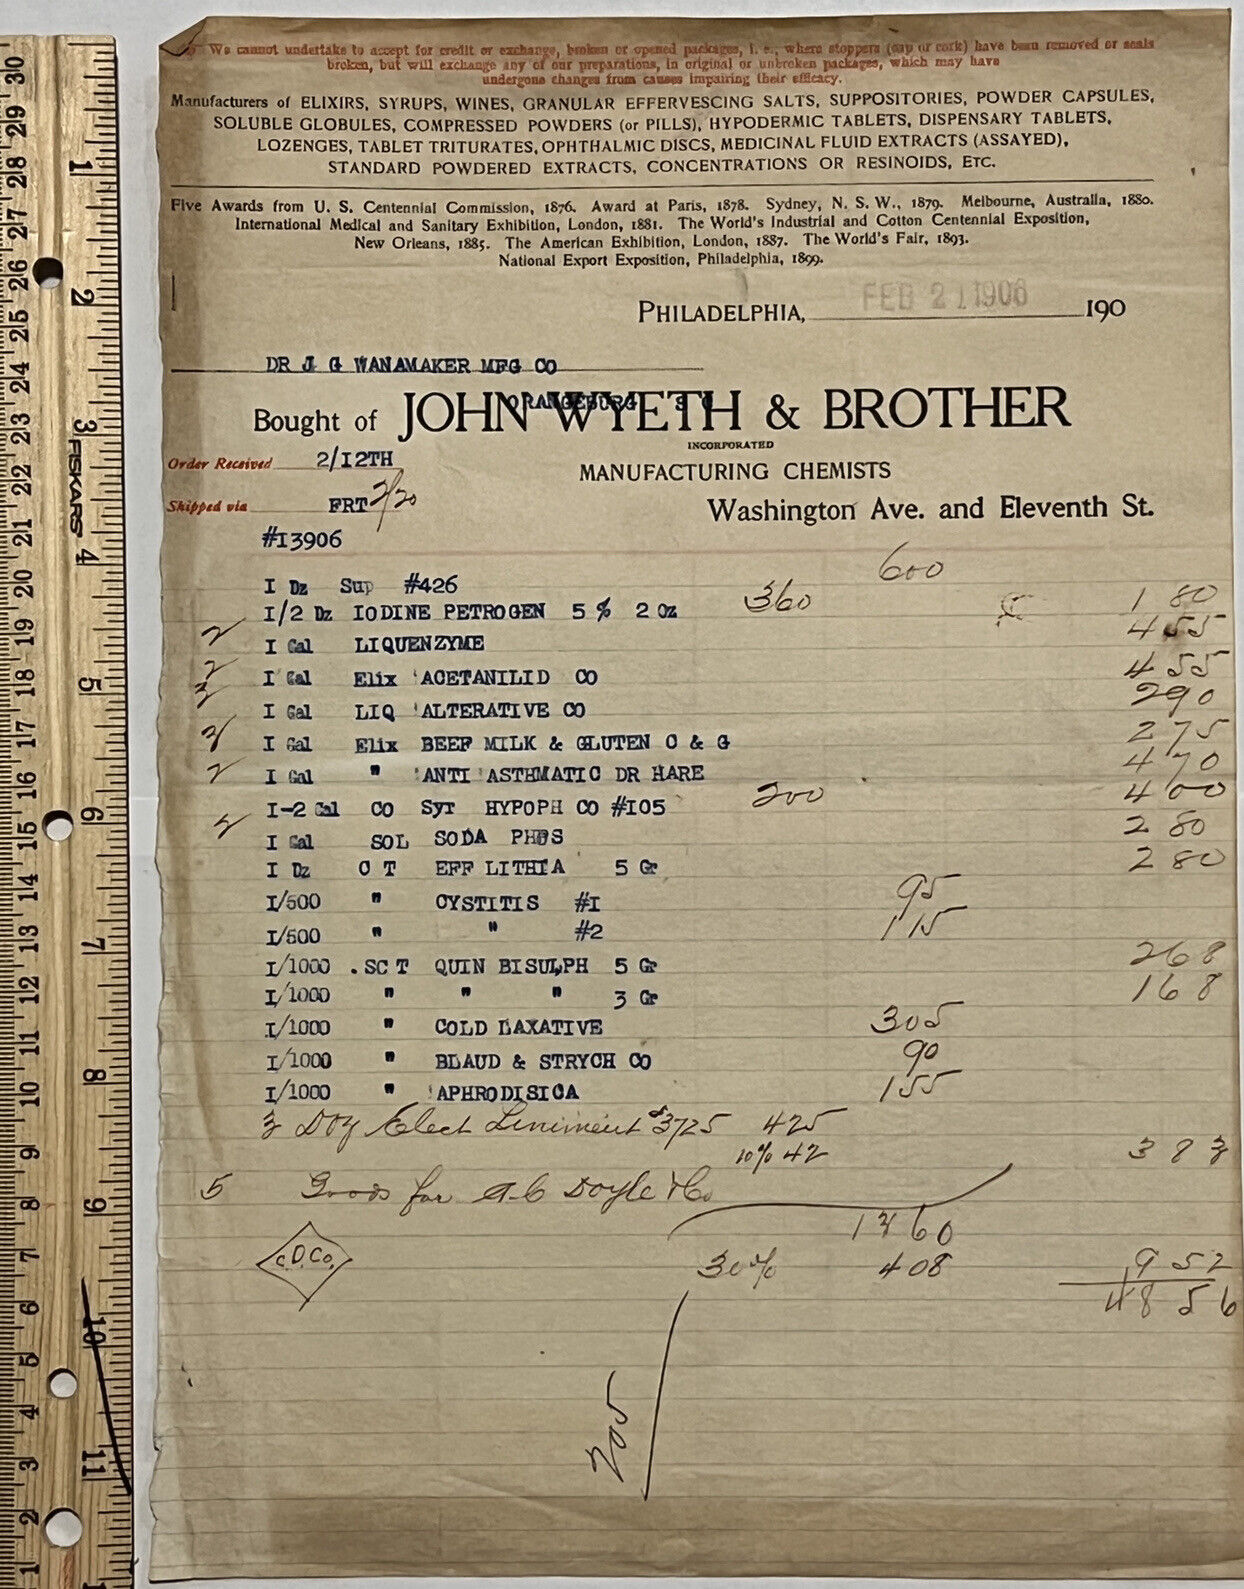 We cannot undertake to accept for credit or exchange, broken or opened packages, i. e., where stoppers (cap or cork) have been removed or seals
broken, but will exchange any of our preparations, in original or unbroken packages, which may have
undergone changes from causes impairing their efficacy.
Manufacturers of ELIXIRS, SYRUPS, WINES, GRANULAR EFFERVESCING SALTS, SUPPOSITORIES, POWDER CAPSULES,
SOLUBLE GLOBULES, COMPRESSED POWDERS (or PILLS), HYPODERMIC TABLETS, DISPENSARY TABLETS,
LOZENGES, TABLET TRITURATES, OPHTHALMIC DISCS, MEDICINAL FLUID EXTRACTS (ASSAYED),
STANDARD POWDERED EXTRACTS, CONCENTRATIONS OR RESINOIDS, ETC.
Five Awards from U. S. Centennial Commission, 1876. Award at Paris, 1878. Sydney, N. S. W., 1879. Melbourne, Australia, 1880.
International Medical and Sanitary Exhibition, London, 1881. The World's Industrial and Cotton Centennial Exposition,
New Orleans, 1885. The American Exhibition, London, 1887. The World's Fair, 1893.
National Export Exposition, Philadelphia, 1899.
PHILADELPHIA, FEB 21 1906 190
DR J G WANAMAKER MFG CO
ORANGEBURG S C
Bought of JOHN WYETH & BROTHER
INCORPORATED
Order Received 2/12TH MANUFACTURING CHEMISTS
Shipped via FRT 2/20 Washington Ave. and Eleventh St.
#13906
I Dz Sup #426 600
I/2 Dz IODINE PETROGEN 5 % 2 Oz 360 1 80
2 I Gal LIQUENZYME 4 55
2 I Gal Elix ACETANILID CO 4 55
2 I Gal LIQ ALTERATIVE CO 2 90
2 I Gal Elix BEEF MILK & GLUTEN C & G 2 75
2 I Gal " ANTI ASTHMATIC DR HARE 4 70
I-2 Gal CO Syr HYPOPH CO #105 200 4 00
2 I Gal SOL SODA PHOS 2 80
I Dz C T EFF LITHIA 5 Gr 2 80
I/500 " CYSTITIS #1 95
I/500 " " #2 1 15
I/1000 .SC T QUIN BISULPH 5 Gr 2 68
I/1000 " " " 3 Gr 1 68
I/1000 " COLD LAXATIVE 305
I/1000 " BLAUD & STRYCH CO 90
I/1000 " APHRODISICA 155
Doz Elect Liniment #3725 425
10% 42 3 83
5 Goods for A-C Doyle & Co
1360
C.D.Co. 30% 408 9 52
48 56
205
30 29 28 27 26 25 24 23 22 21 20 19 18 17 16 15 14 13 12 11 10 9 8 7 6 5 4 3 2 1
1 2 3 FISKARS 4 5 6 7 8 9 10 11